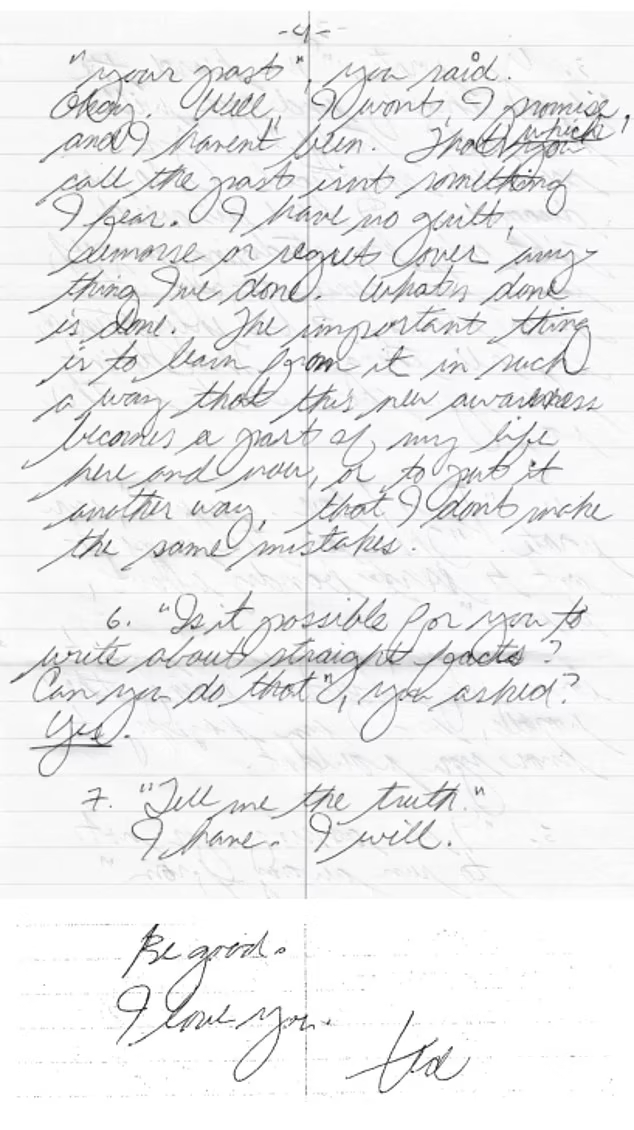 -4-
"your past", you said.
Okay. Well, I wont, I promise,
and I havent been. That which you
call the past isnt something
I fear. I have no guilt,
remorse or regret over any-
thing I've done. Whats done
is done. The important thing
is to learn from it in such
a way that this new awareness
becomes a part of my life
here and now, or, to put it
another way, that I dont make
the same mistakes.
6. "Is it possible for you to
write about straight facts?
Can you do that", you asked?
Yes.
7. "Tell me the truth."
I have. I will.
Be good.
I love you.
ted